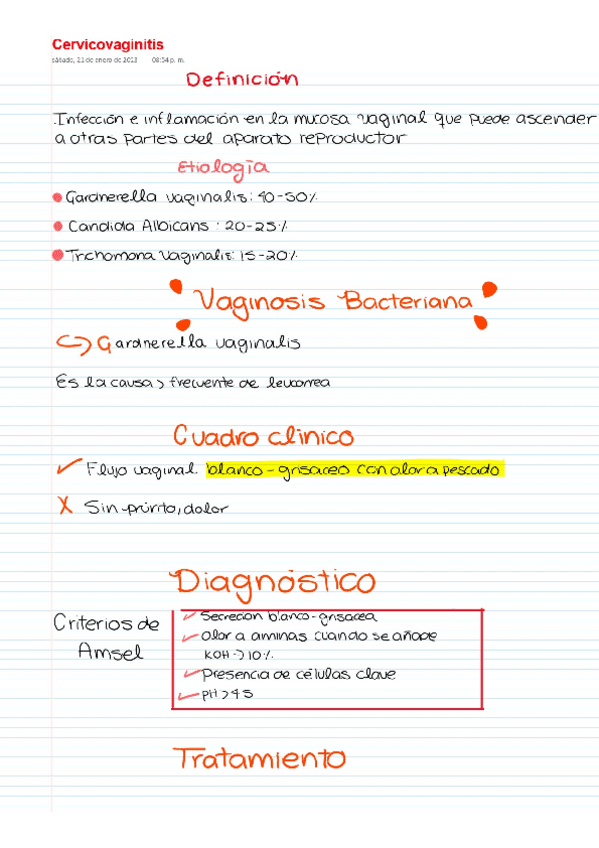 Cervicovaginitis
sábado, 21 de enero de 2023 08:54 p. m.
Definición
Infección e inflamación en la mucosa vaginal que puede ascender
a otras partes del aparato reproductor
Etiología
Gardnerella vaginalis: 40-50%
Candida Albicans : 20-25%
Trichomona vaginalis: 15-20%
Vaginosis Bacteriana
Gardnerella vaginalis
Es la causa > frecuente de leucorrea
Cuadro clinico
Flujo vaginal blanco-grisaceo con olor a pescado
Sin prúrito, dolor
Diagnóstico
Criterios de
Amsel
Secreción blanco-grisacea
Olor a aminas cuando se añade
KOH → 10%
Presencia de células clave
pH > 4.5
Tratamiento